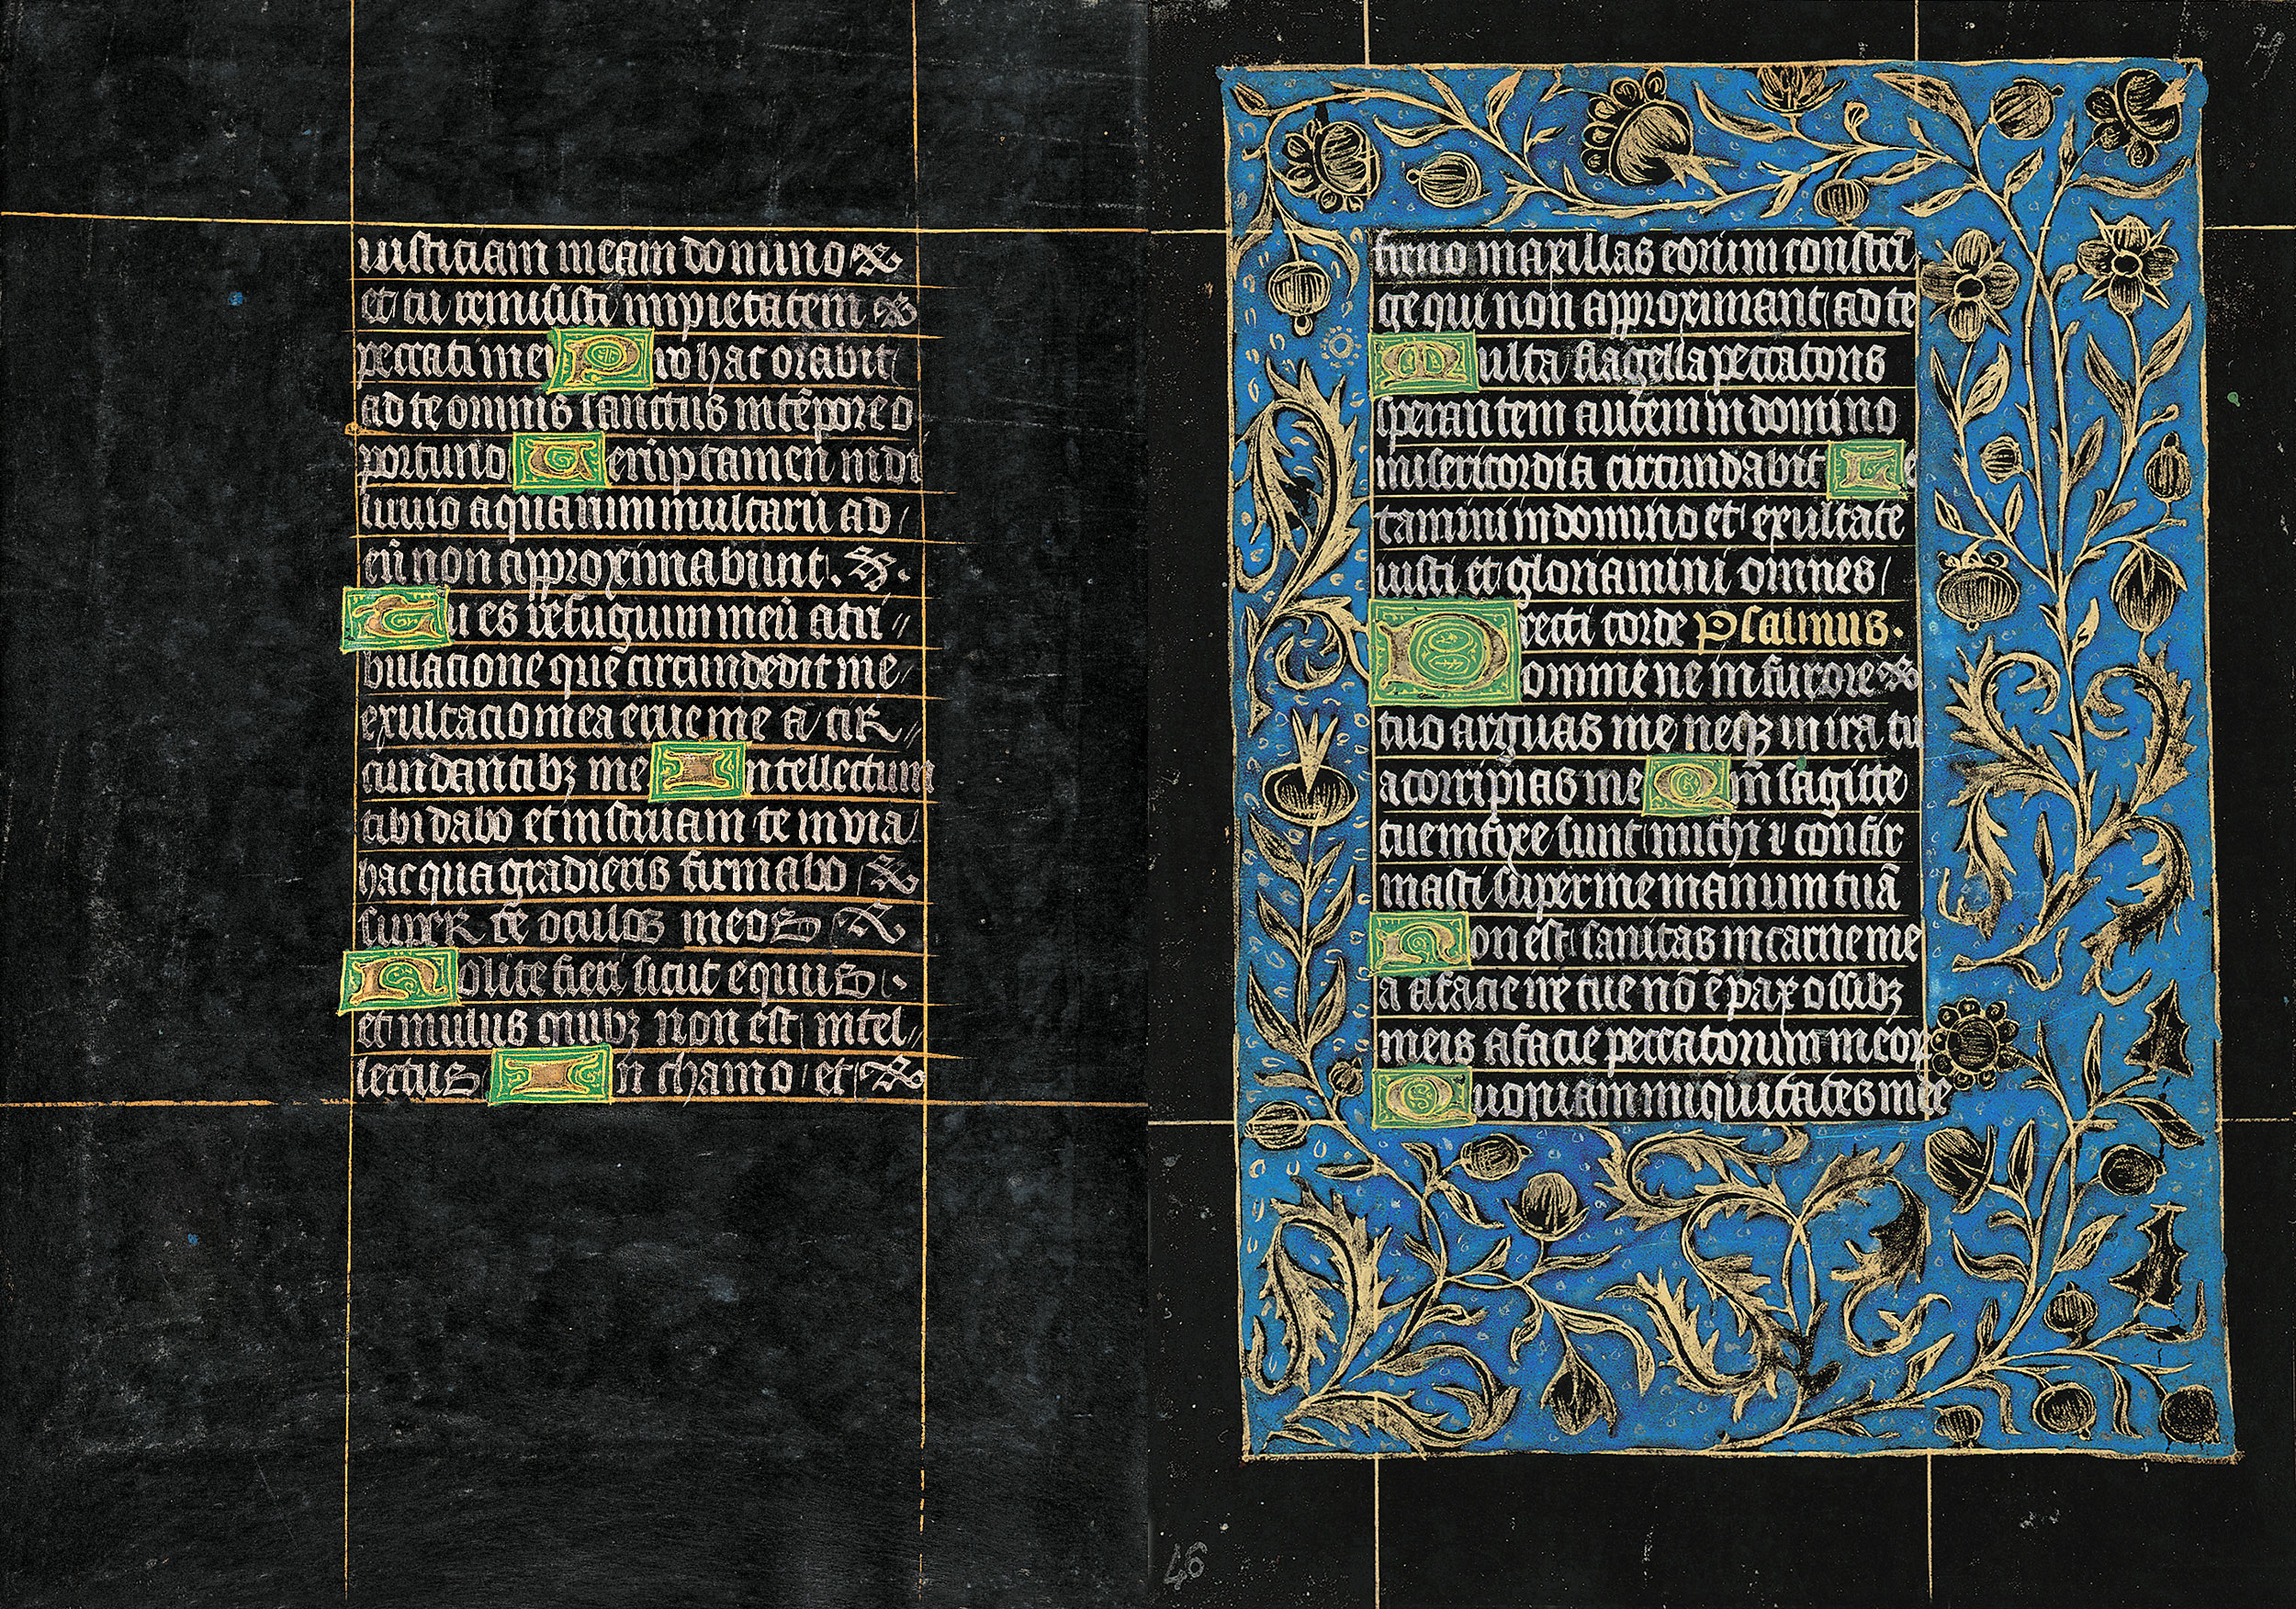 iusticiam meam domino
et tu remisisti impietatem
peccati mei Pro hac orabit
ad te omnis sanctus in tēpore o
portuno Uerūptamen in di
luuio aquarum multarū ad
eū non approximabunt. 
Tu es refugium meū a tri
bulacione que circumdedit me
exultacio mea erue me a cir
cundantibꝫ me Intellectum
tibi dabo et instruam te in via
hac qua gradieris firmabo
super te oculos meos
Nolite fieri sicut equus
et mulus quibꝫ non est intel
lectus In chamo et
freno maxillas eorum constrī
ge qui non approximant ad te
Multa flagella peccatoris
sperantem autem in domino
misericordia circundabit Le
tamini in domino et exultate
iusti et gloriamini omnes
recti corde Psalmus.
Domine ne in furore
tuo arguas me neqꝫ in ira tu
a corripias me Qm̄ sagitte
tue infixe sunt michi ⁊ confir
masti super me manum tuā
Non est sanitas in carne me
a a facie ire tue nō ē pax ossibꝫ
meis a facie peccatorum meorꝝ
Quoniam iniquitates mee
46